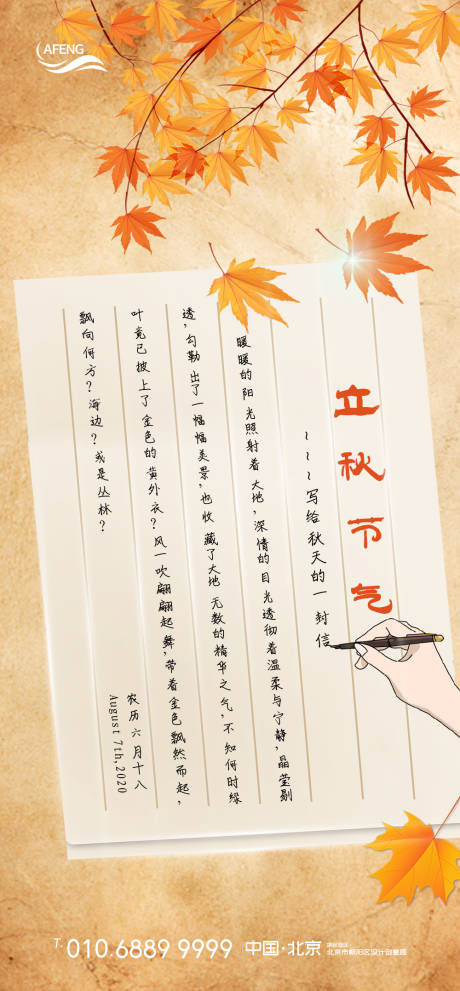 AFENG
立秋节气
~~~写给秋天的一封信
暖暖的阳光照射着大地,深情的目光透彻着温柔与宁静,晶莹剔
透,勾勒出了一幅幅美景,也收藏了大地无数的精华之气,不知何时绿
叶竟已披上了金色的黄外衣?风一吹翩翩起舞,带着金色飘然而起,
飘向何方?海边?或是丛林?
农历六月十八
August 7th,2020
T. 010.6889 9999 中国·北京
北京市朝阳区设计创意园